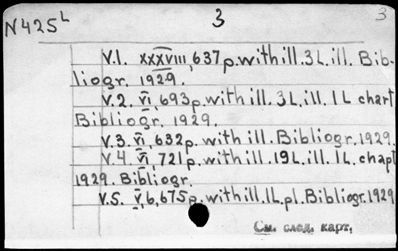 N425L 3 3
V.1. XXXVIII, 637p. with ill. 3L. ill. Bib-
liogr. 1929.
V.2. VI, 693p. with ill. 3L. ill. 1L chart
Bibliogr. 1929.
V.3. VI, 632p. with ill. Bibliogr. 1929.
V.4. VI, 721p. with ill. 19L. ill. 1L. chapt
1929. Bibliogr.
V.5. V, 6, 675p. with ill. 1L. pl. Bibliogr. 1929
См. след. карт.